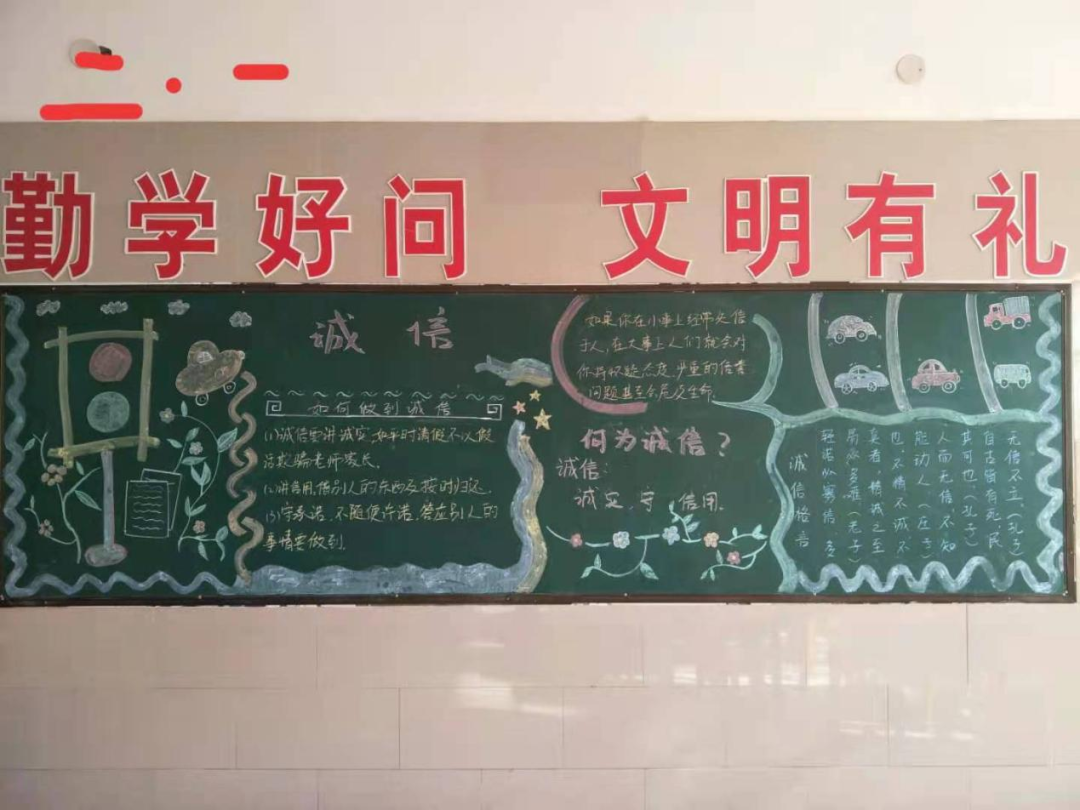 二.一
勤学好问 文明有礼
诚信
如何做到诚信
(1)诚信要讲诚实,如平时请假不以假
话欺骗老师家长。
(2)讲信用,借别人的东西及按时归还。
(3)守承诺,不随便许诺,答应别人的
事情要做到。
如果你在小事上经常失信
于人,在大事上人们就会对
你持怀疑态度,严重的信誉
问题甚至会危及生命.
何为诚信?
诚信:
诚实,守信用.
无信不立(孔子)
自古皆有死,民
其可也(孔子)
人而无信不知
能动人(庄子)
也,不精不诚不
真者,精诚之至
易必多难(老子)
轻诺必寡信多
诚信格言